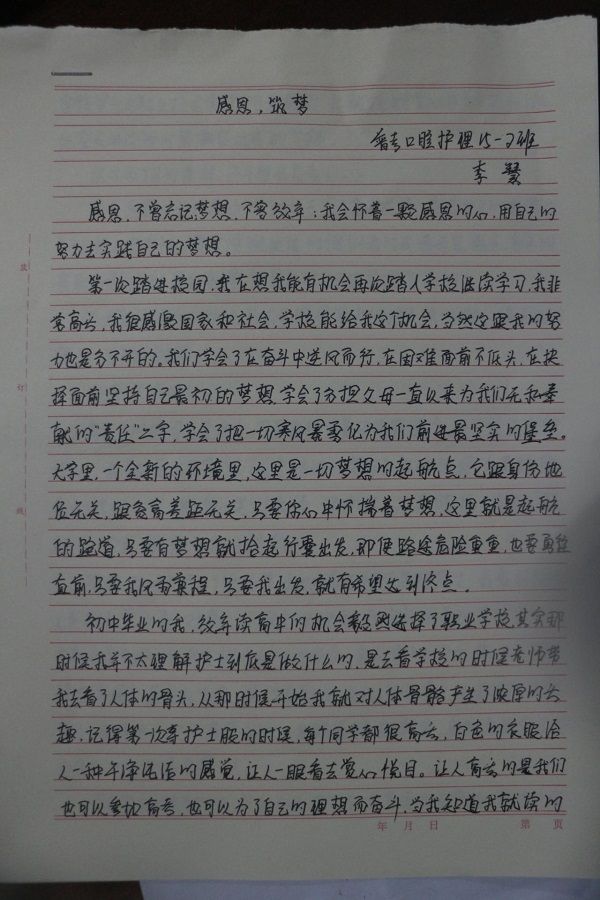 感恩，筑梦
普专口腔护理15-2班
李
感恩，不曾忘记梦想，不容放弃；我会怀着一颗感恩的心，用自己的
努力去实践自己的梦想。
第一次踏进校园，我在想我能有机会再次踏入学校进读学习，我非
常高兴，我很感激国家和社会，学校能给我这个机会，当然这跟我的努
力也是分不开的。我们学会了在奋斗中逆风而行，在困难面前不低头，在抉
择面前坚持自己最初的梦想，学会了分担父母一直以来为我们无私奉
献的"责任"二字，学会了把一切寒风暴雪化为我们前进最坚实的堡垒。
大学里，一个全新的环境里，这里是一切梦想的起航点，它跟身份地
位无关，跟贫富差距无关，只要你心中怀揣着梦想，这里就是起航
的跑道，只要有梦想就拾起行囊出发，即使路途危险重重，也要勇往
直前，只要我风雨兼程，只要我出发，就有希望达到终点。
初中毕业的我，放弃读高中的机会毅然选择了职业学校其实那
时候我并不太理解护士到底是做什么的，是去看学校的时候老师带
我去看了人体的骨头，从那时候开始我就对人体骨骼产生了浓厚的兴
趣，记得第一次穿护士服的时候，每个同学都很高兴，白色的衣服给
人一种干净洁洁的感觉，让人一眼看去赏心悦目。让人高兴的是我们
也可以参加高考，也可以为了自己的理想而奋斗，当我知道我就读的
年 月 日 第 页
装
订
线